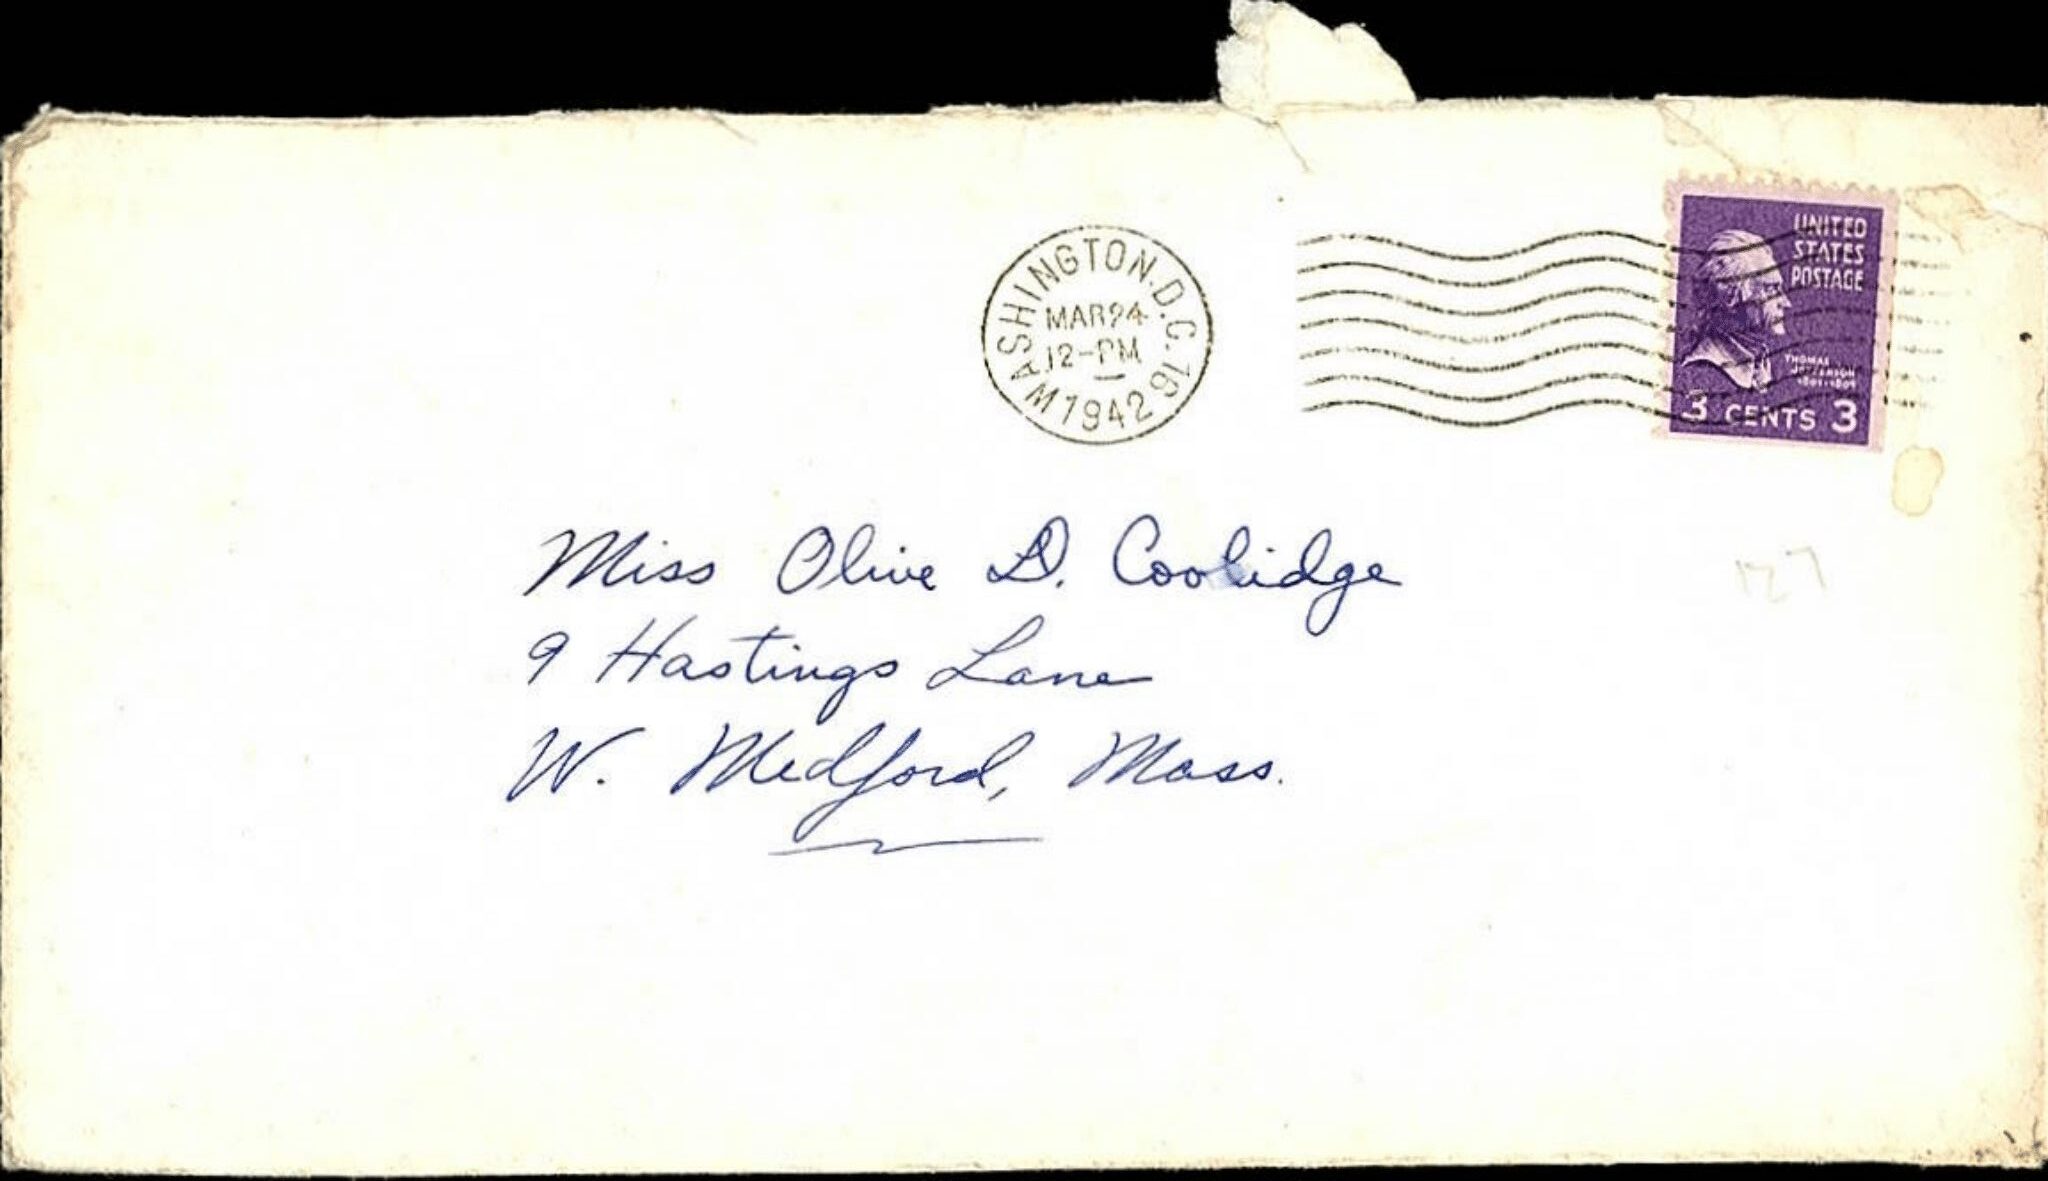 WASHINGTON, D.C. 16
MAR 24
12-PM
1942
UNITED
STATES
POSTAGE
THOMAS
JEFFERSON
1801-1809
3 CENTS 3
Miss Olive D. Coolidge
9 Hastings Lane
W. Medford, Mass.
127